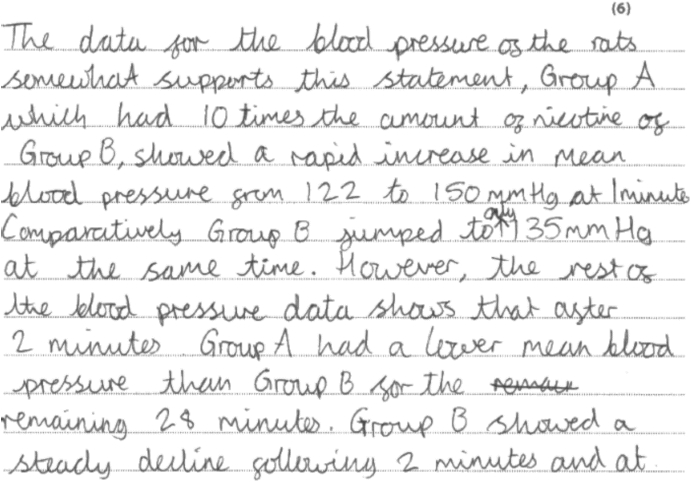 (6)
The data for the blood pressure of the rats
somewhat supports this statement, Group A
which had 10 times the amount of nicotine of
Group B, showed a rapid increase in mean
blood pressure from 122 to 150 mmHg at 1 minute
Comparatively Group B jumped to only 135 mmHg
at the same time. However, the rest of
the blood pressure data shows that after
2 minutes Group A had a lower mean blood
pressure than Group B for the
remaining 28 minutes. Group B showed a
steady decline following 2 minutes and at